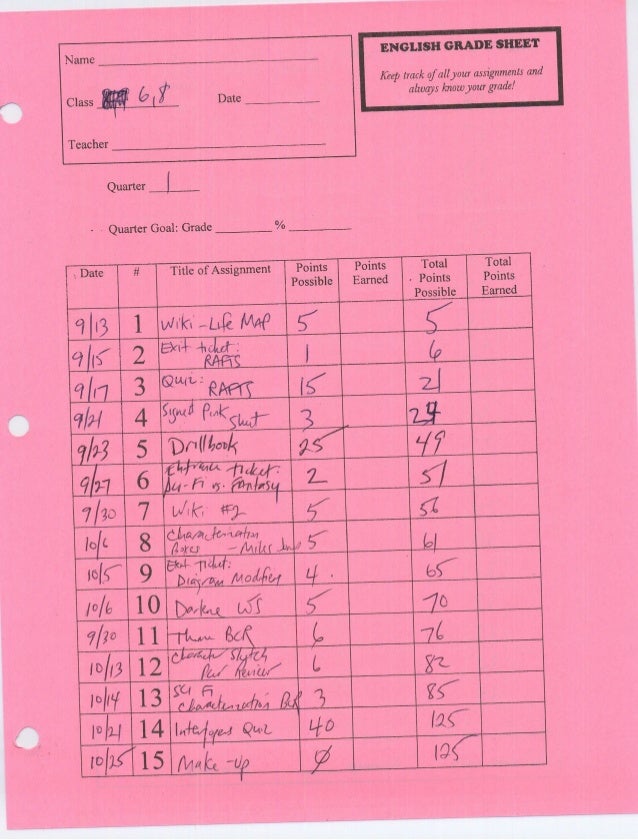 ENGLISH GRADE SHEET
Keep track of all your assignments and
always know your grade!
Name
Class 6,8 Date
Teacher
Quarter 1
Quarter Goal: Grade %
Date # Title of Assignment Points Possible Points Earned Total Points Possible Total Points Earned
9/13 1 Wiki - Life Map 5 5
9/15 2 Exit ticket: RAFTS 1 6
9/17 3 Quiz: RAFTS 15 21
9/21 4 Signed Pink Sheet 3 24
9/23 5 Drillbook 25 49
9/27 6 Entrance ticket: Sci-Fi vs. Fantasy 2 51
9/30 7 Wiki #2 5 56
10/6 8 Characterization Boxes - Miles 5 61
10/5 9 Exit Ticket: Diagram Modifiers 4 65
10/6 10 Darlene WS 5 70
9/30 11 Theme BCR 6 76
10/13 12 Character Sketch Peer Review 6 82
10/14 13 Sci Fi Characterization BCR 3 85
10/21 14 Interlopers Quiz 40 125
10/25 15 Make-up 0 125